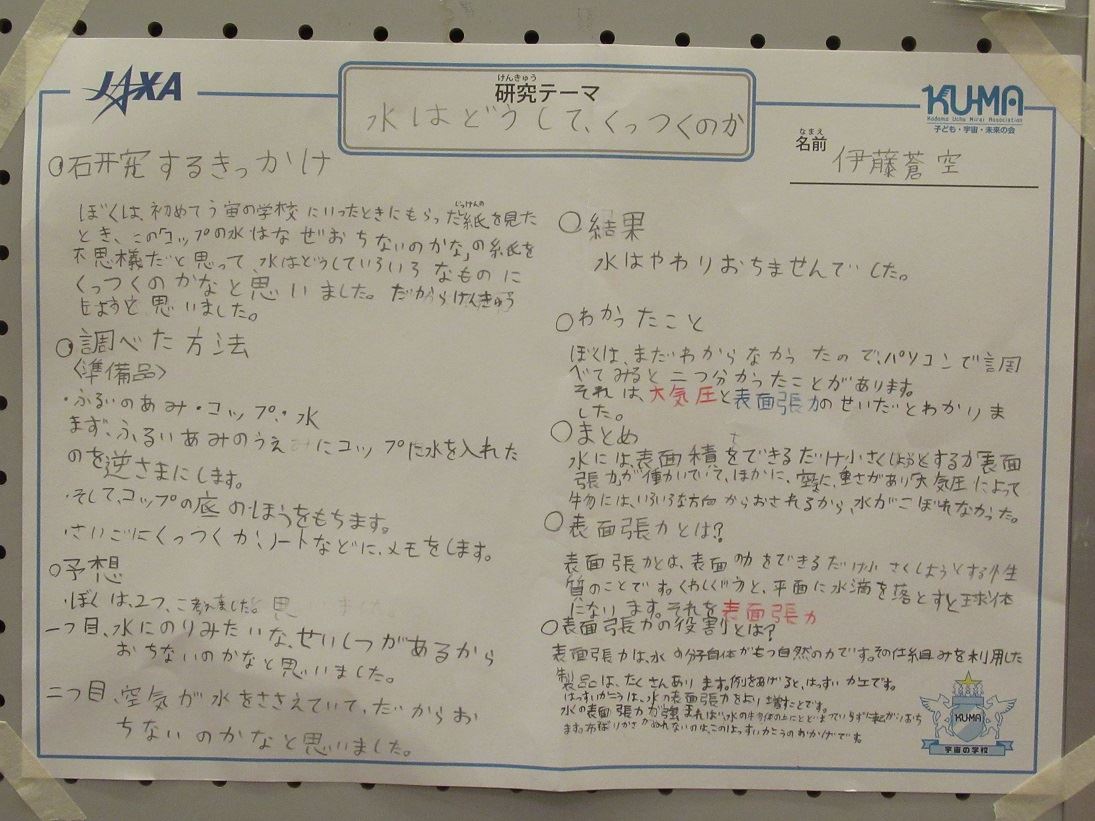 JAXA
けんきゅう
研究テーマ
水はどうして、くっつくのか
KU-MA
Kodomo Uchu Mirai Association
子ども・宇宙・未来の会
なまえ
名前
伊藤蒼空
○研究するきっかけ
ぼくは、初めてう宙の学校にいったときにもらった紙を見た
じっけんの
とき、この「コップの水はなぜおちないのかな」の紙を
不思議だと思って水はどうしていろいろなものに
くっつくのかなと思いました。だからけんきゅう
しようと思いました。
○調べた方法
〈準備品〉
・ふるいのあみ・コップ・水
まず、ふるいあみのうえにコップに水を入れた
のを逆さまにします。
・そして、コップの底のほうをもちます。
さいごにくっつくか、ノートなどに、メモをします。
○予想
・ぼくは、2つ、こ考えました。
一つ目、水にのりみたいな、せいしつがあるから
おちないのかなと思いました。
二つ目、空気が水をささえていて、だからお
ちないのかなと思いました。
○結果
水はやわりおちませんでした。
○わかったこと
ぼくは、まだわからなかったので、パソコンで調
べてみると二つ分かったことがあります。
それは、大気圧と表面張力のせいだとわかりま
した。
○まとめ
水には、表面積をできるだけ小さくしようとする力「表面
張力」が働いていて、ほかに、空気に、重さがあり「大気圧」によって
物には、いろいろな方向からおされるから、水がこぼれなかった。
○表面張力とは?
表面張力とは、表面の力をできるだけ小さくしようとする性
質のことです。くわしくゆうと、平面に水滴を落とすと球体
になります。それを表面張力
○表面張力の役割とは?
表面張力は、水の分子自体がもつ自然の力です。その仕組みを利用した
製品は、たくさんあります。例をあげると、はっすい力工です。
はっすいかこうは、水の表面張力をより増すことです。
水の表面張力が強まれば、水の物体の上にとどまていらずに転がりおち
ます。がぬれないのは、このはっすいかこうのおかげです。
KU-MA
宇宙の学校